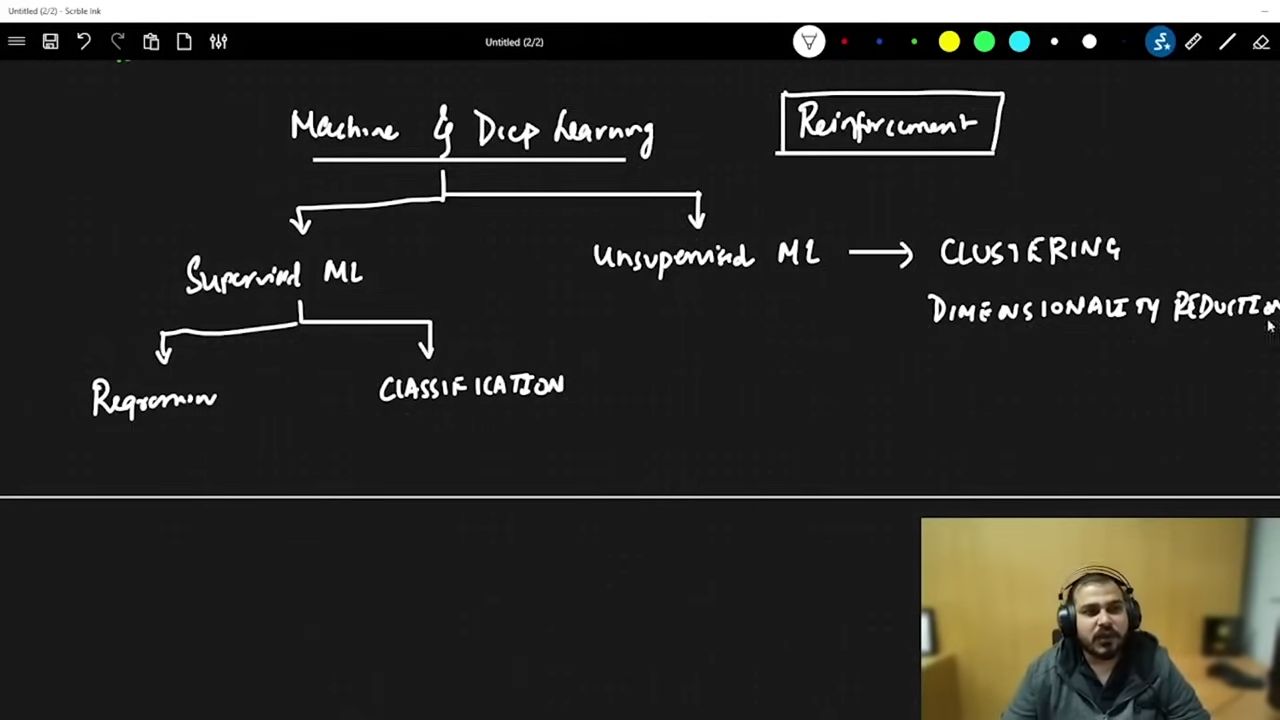 Untitled (2/2) - Scrble Ink
Untitled (2/2)
Machine & Deep Learning
Reinforcement
Supervised ML
Unsupervised ML → CLUSTERING
DIMENSIONALITY REDUCTION
Regression
CLASSIFICATION